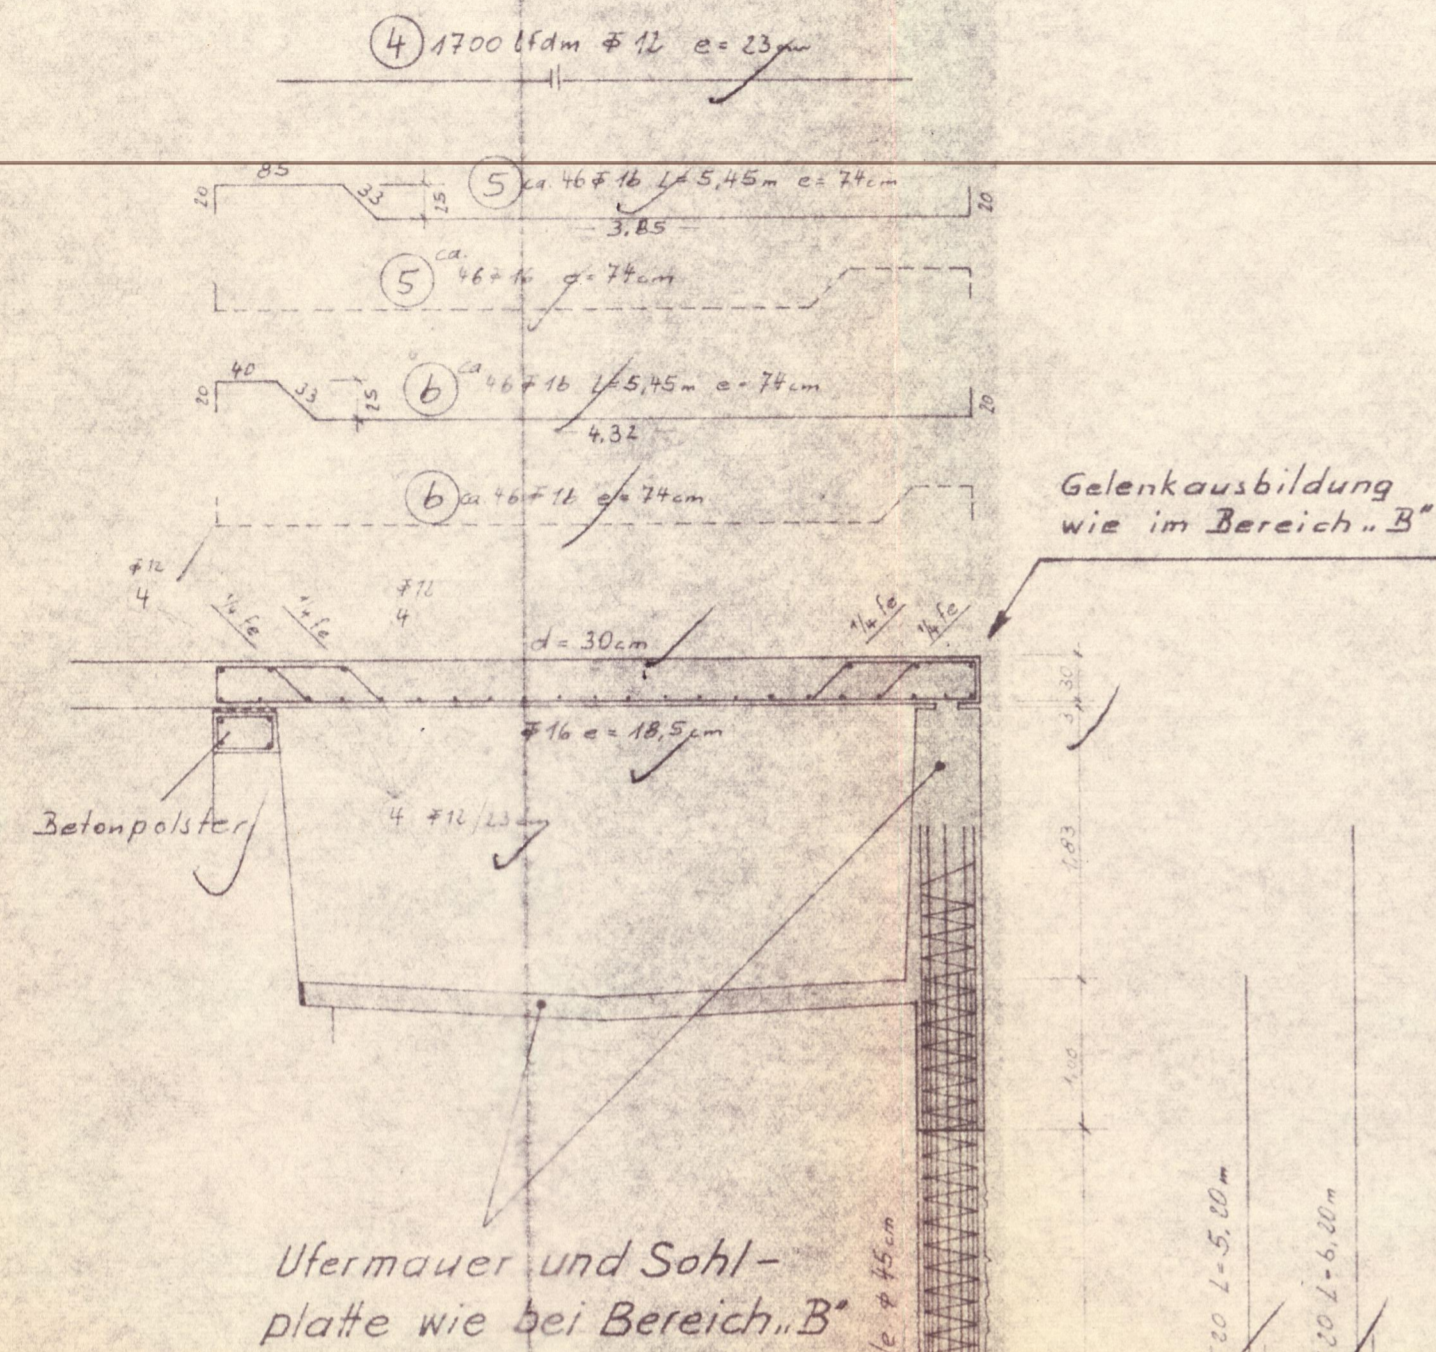 4 1700 lfdm ∅ 12 e = 23 cm
85
20 33 25 5 ca. 46 ∅ 16 L = 5,45 m e = 74 cm 20
3.85
5 ca. 46 ∅ 16 e = 74 cm
40
20 33 25 6 ca 46 ∅ 16 L = 5,45 m e = 74 cm 20
4.32
6 ca 46 ∅ 16 e = 74 cm
Gelenkausbildung
wie im Bereich „B"
∅ 12
4
∅ 12
4
¼ fe ¼ fe ¼ fe
d = 30 cm
30
∅ 16 e = 18,5 cm
Betonpolster
4 ∅ 12/23 cm
1,83
1,00
Ufermauer und Sohl-
platte wie bei Bereich „B"
∅ 45 cm
20 L = 5,20 m
20 L = 6,20 m